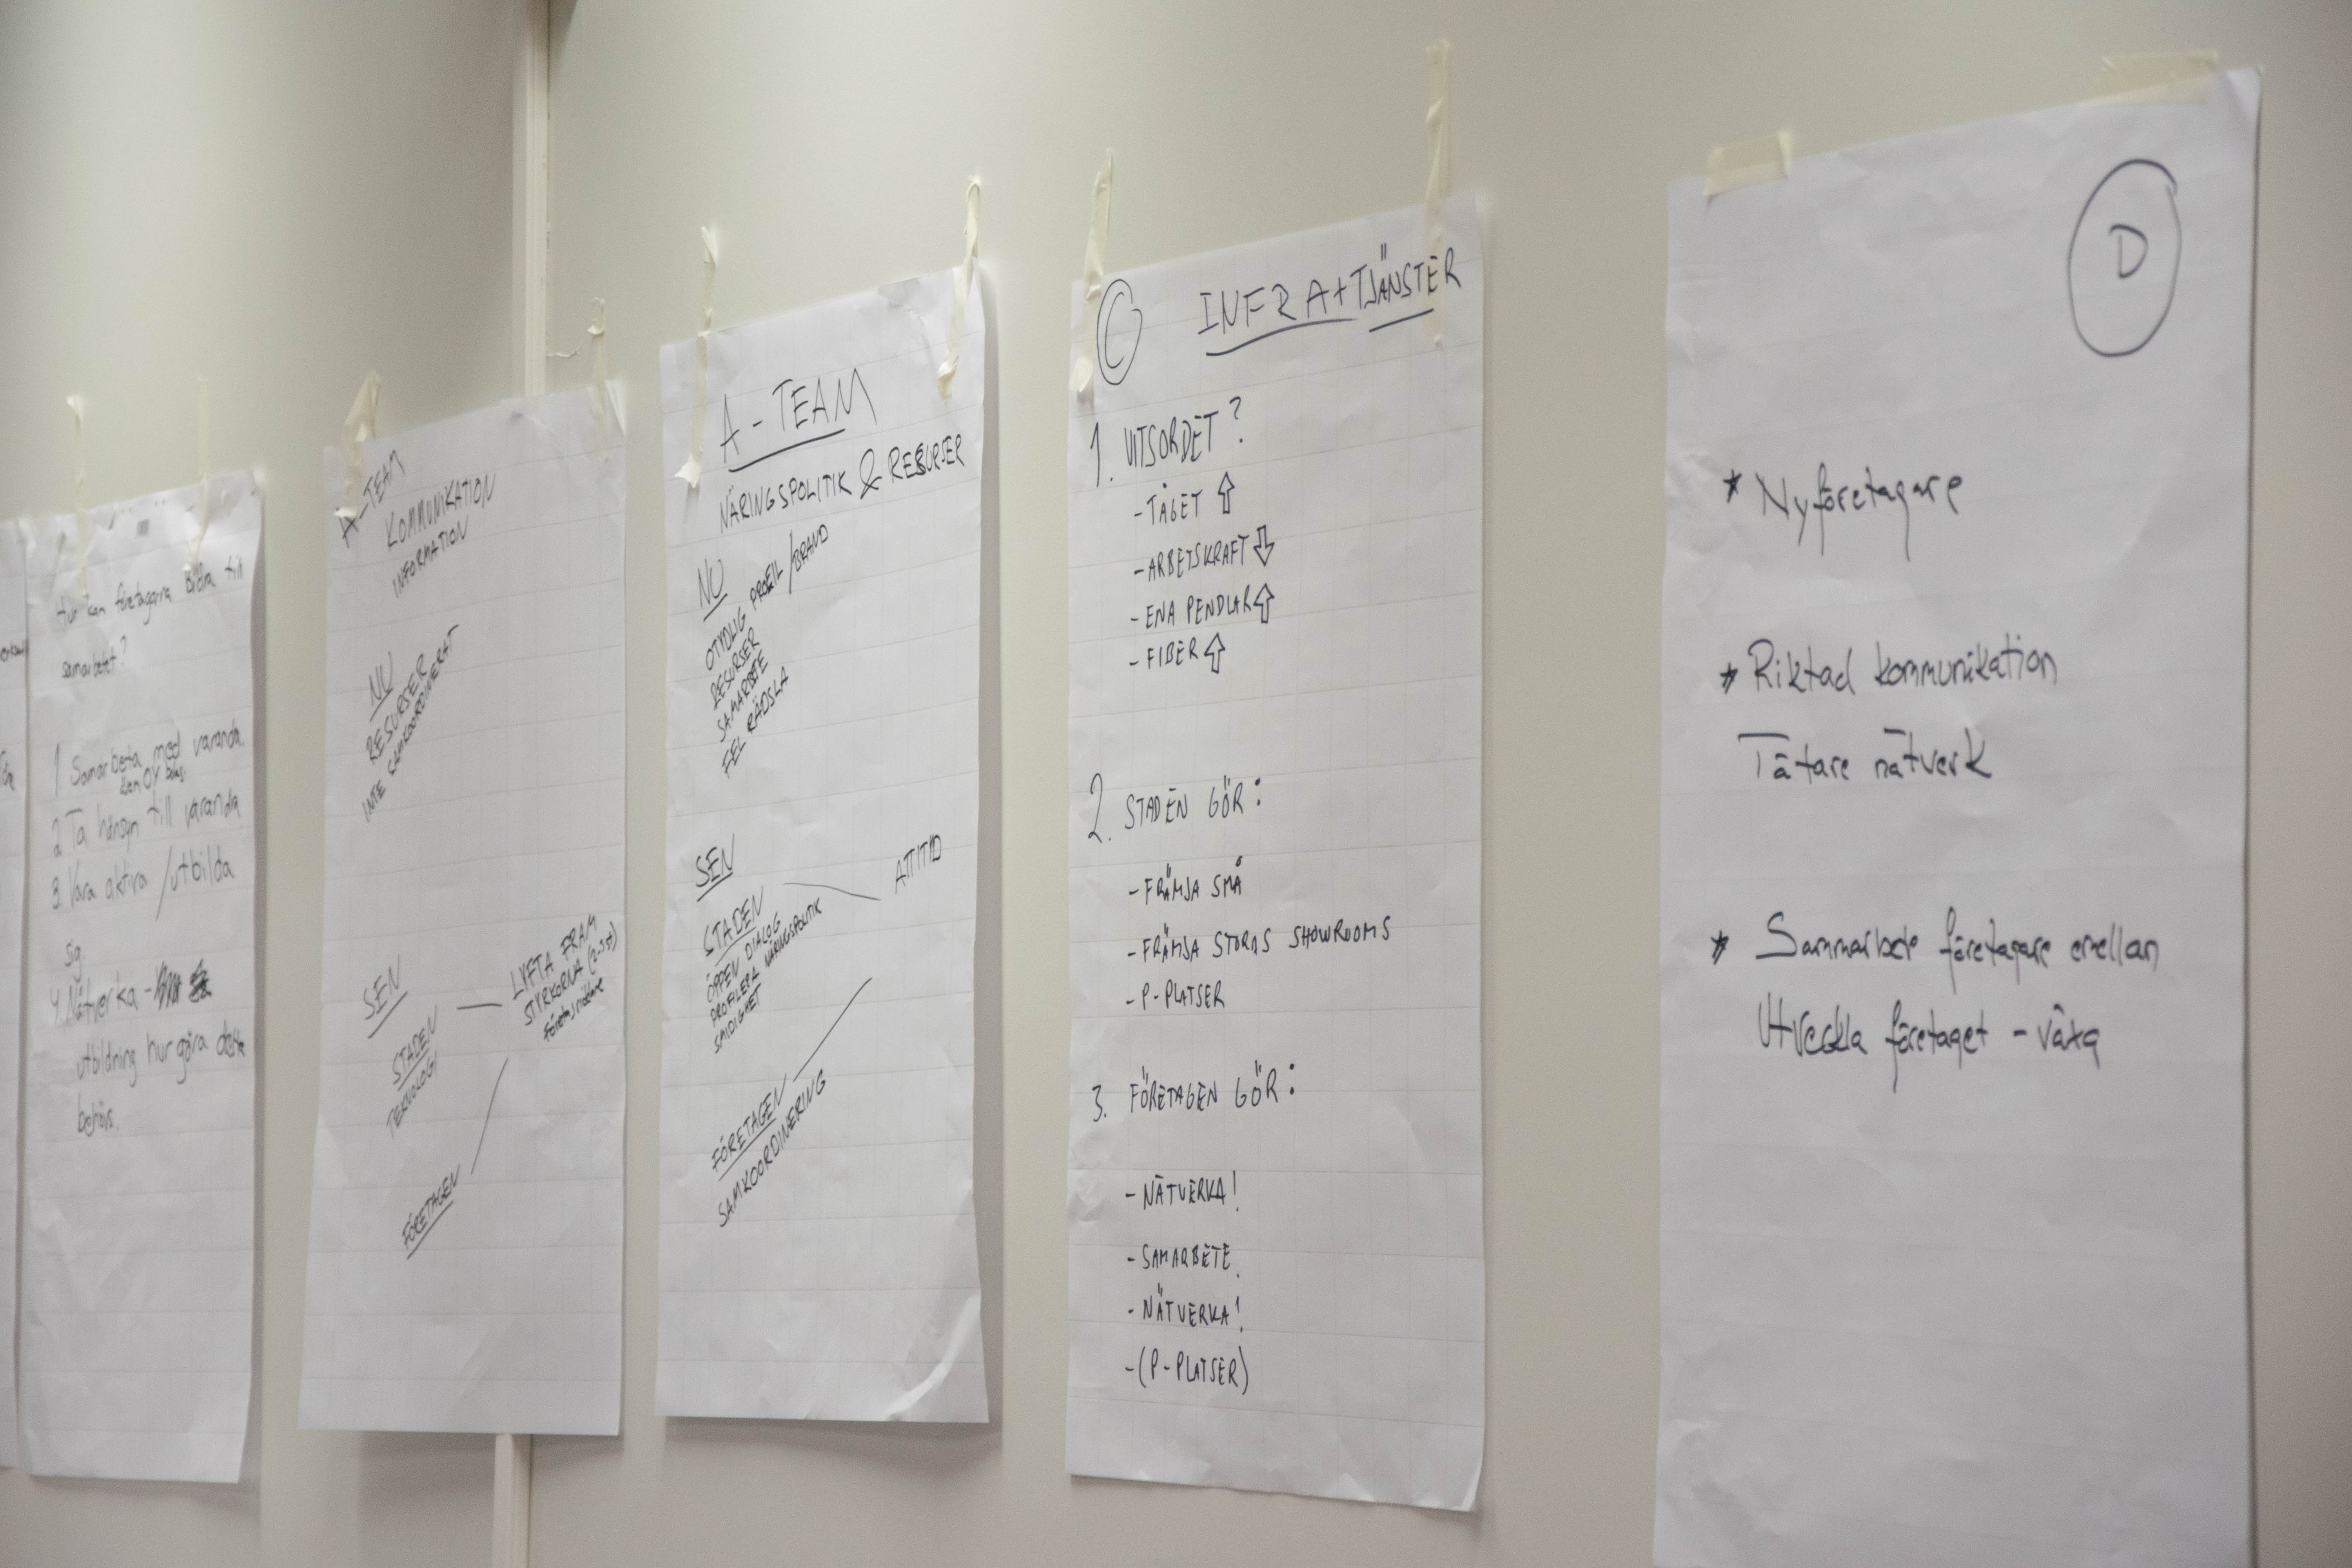 Hur kan företagarna bidra till
samarbetet?
1. Samarbeta med varanda.
2 Ta hänsyn till varanda
3. Vara aktiva /utbilda
sig.
4. Nätverka -
utbildning hur göra detta
behövs.
A-TEAM
KOMMUNIKATION
INFORMATION
NU
RESURSER
INTE SAMKOORDINERAT
SEN
STADEN
TEKNOLOGI
LYFTA FRAM
STYRKORNA (2-3st)
FÖRETAGEN
A-TEAM
NÄRINGSPOLITIK & RESURSER
NU
OTYDLIG PROFIL/BRAND
RESURSER
SAMARBETE
FEL RÄDSLA
SEN
STADEN
ÖPPEN DIALOG
PROFILERA NÄRINGSPOLITIK
SMIDIGHET
ATTITYD
FÖRETAGEN
SAMKOORDINERING
C INFRA+TJÄNSTER
1. VITSORDET?
- TÅGET ⇧
- ARBETSKRAFT ⇩
- ENA PENDLAR ⇧
- FIBER ⇧
2. STADEN GÖR:
- FRÄMJA SMÅ
- FRÄMJA STORAS SHOWROOMS
- P-PLATSER
3. FÖRETAGEN GÖR:
- NÄTVERKA!
- SAMARBETE
- NÄTVERKA!
- (P-PLATSER)
D
* Nyföretagare
* Riktad kommunikation
Tätare nätverk
* Sammarbete företagare emellan
Utveckla företaget - växa